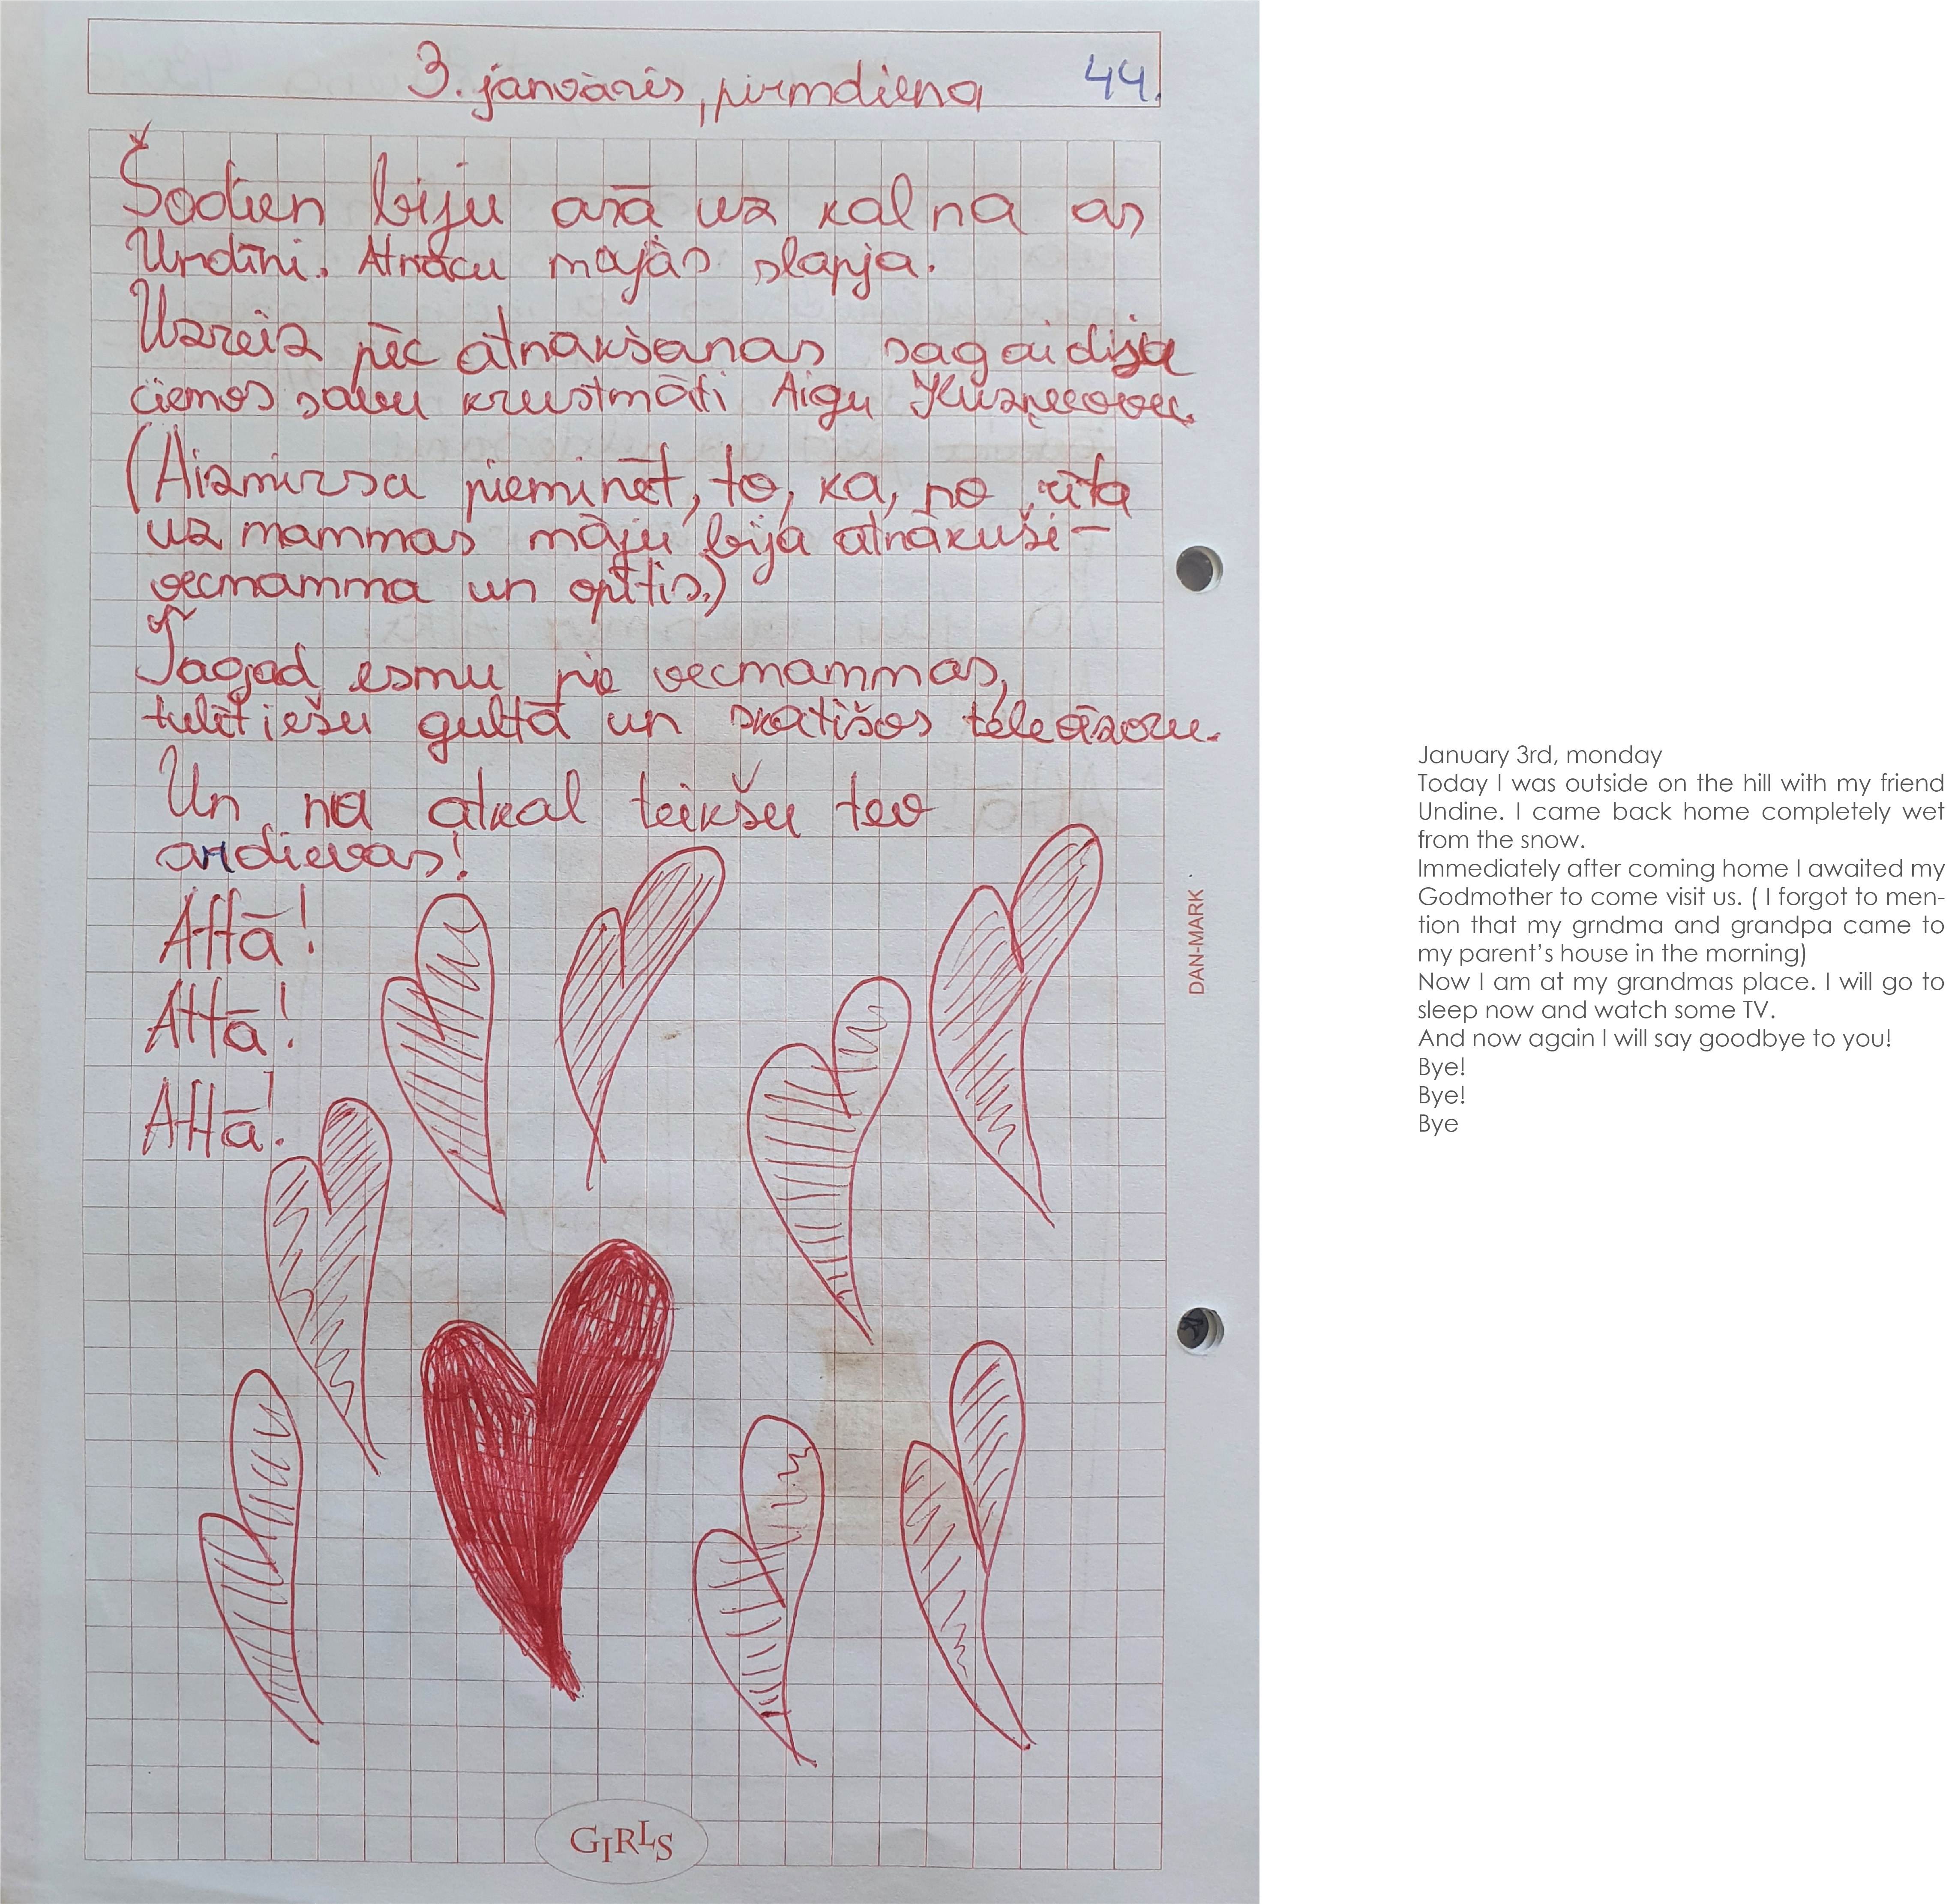 3. janvāris, pirmdiena
44.
Šodien biju ārā uz kalna ar
Undīni. Atnācu mājās slapja.
Uzreiz pēc atnākšanas sagaidīju
ciemos savu krustmāti Aigu
(Aizmirsu pieminēt, to, ka, no rīta
uz mammas māju bija atnākuši -
vecmamma un opītis.)
Tagad esmu pie vecmammas,
tulīt iešu gultā un skatīšos televīzoru.
Un nu atkal teikšu tev
ardievas!
Attā!
Attā!
Attā!
DAN-MARK
GIRLS
January 3rd, monday
Today I was outside on the hill with my friend
Undine. I came back home completely wet
from the snow.
Immediately after coming home I awaited my
Godmother to come visit us. ( I forgot to men-
tion that my grndma and grandpa came to
my parent's house in the morning)
Now I am at my grandmas place. I will go to
sleep now and watch some TV.
And now again I will say goodbye to you!
Bye!
Bye!
Bye